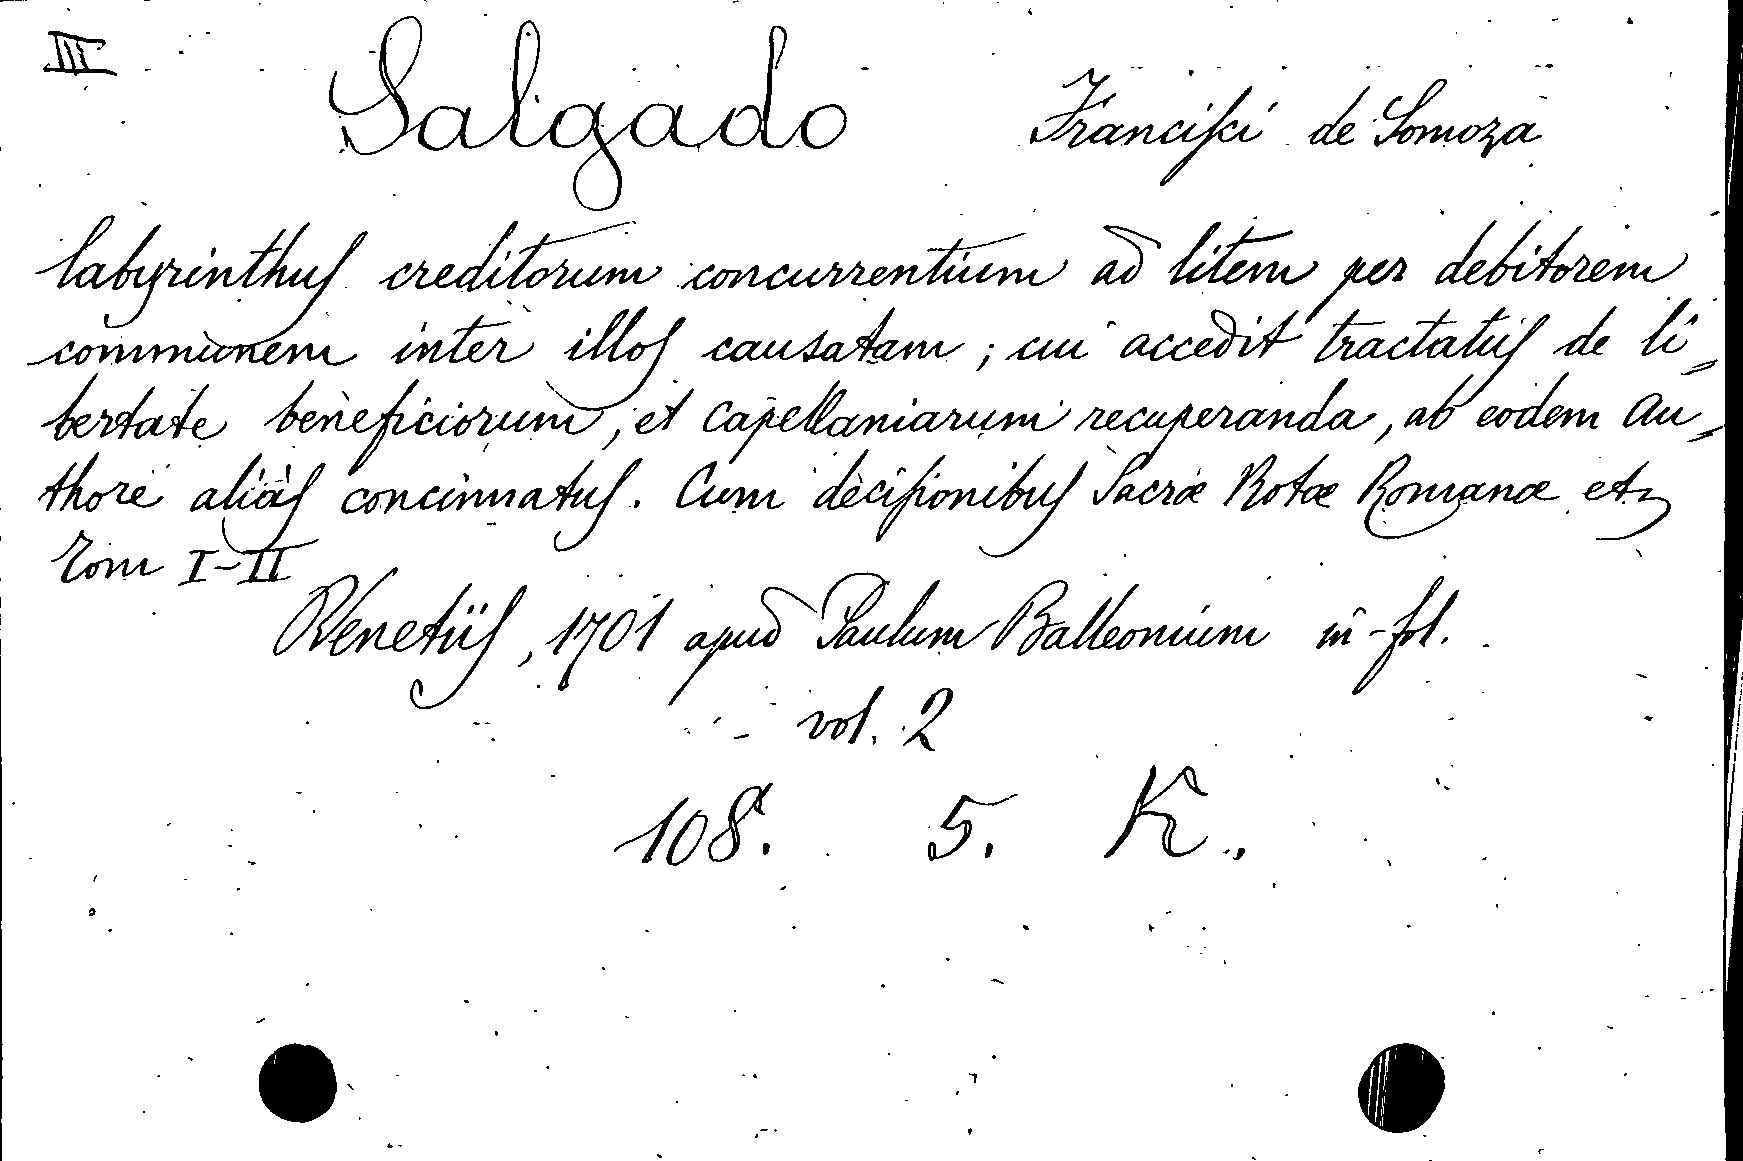 III
Salgado Francisci de Somoza
labyrinthus creditorum concurrentium ad litem per debitorem
communem inter illos causatam; cui accedit tractatus de li=
bertate beneficiorum, et Capellaniarum recuperanda, ab eodem Au=
thore aliàs concinnatus. Cum decisionibus Sacræ Rotæ Romanæ etz
Tom I-II
Venetiis, 1701 apud Paulum Balleonium in-fol.
vol. 2
108. 5. K.